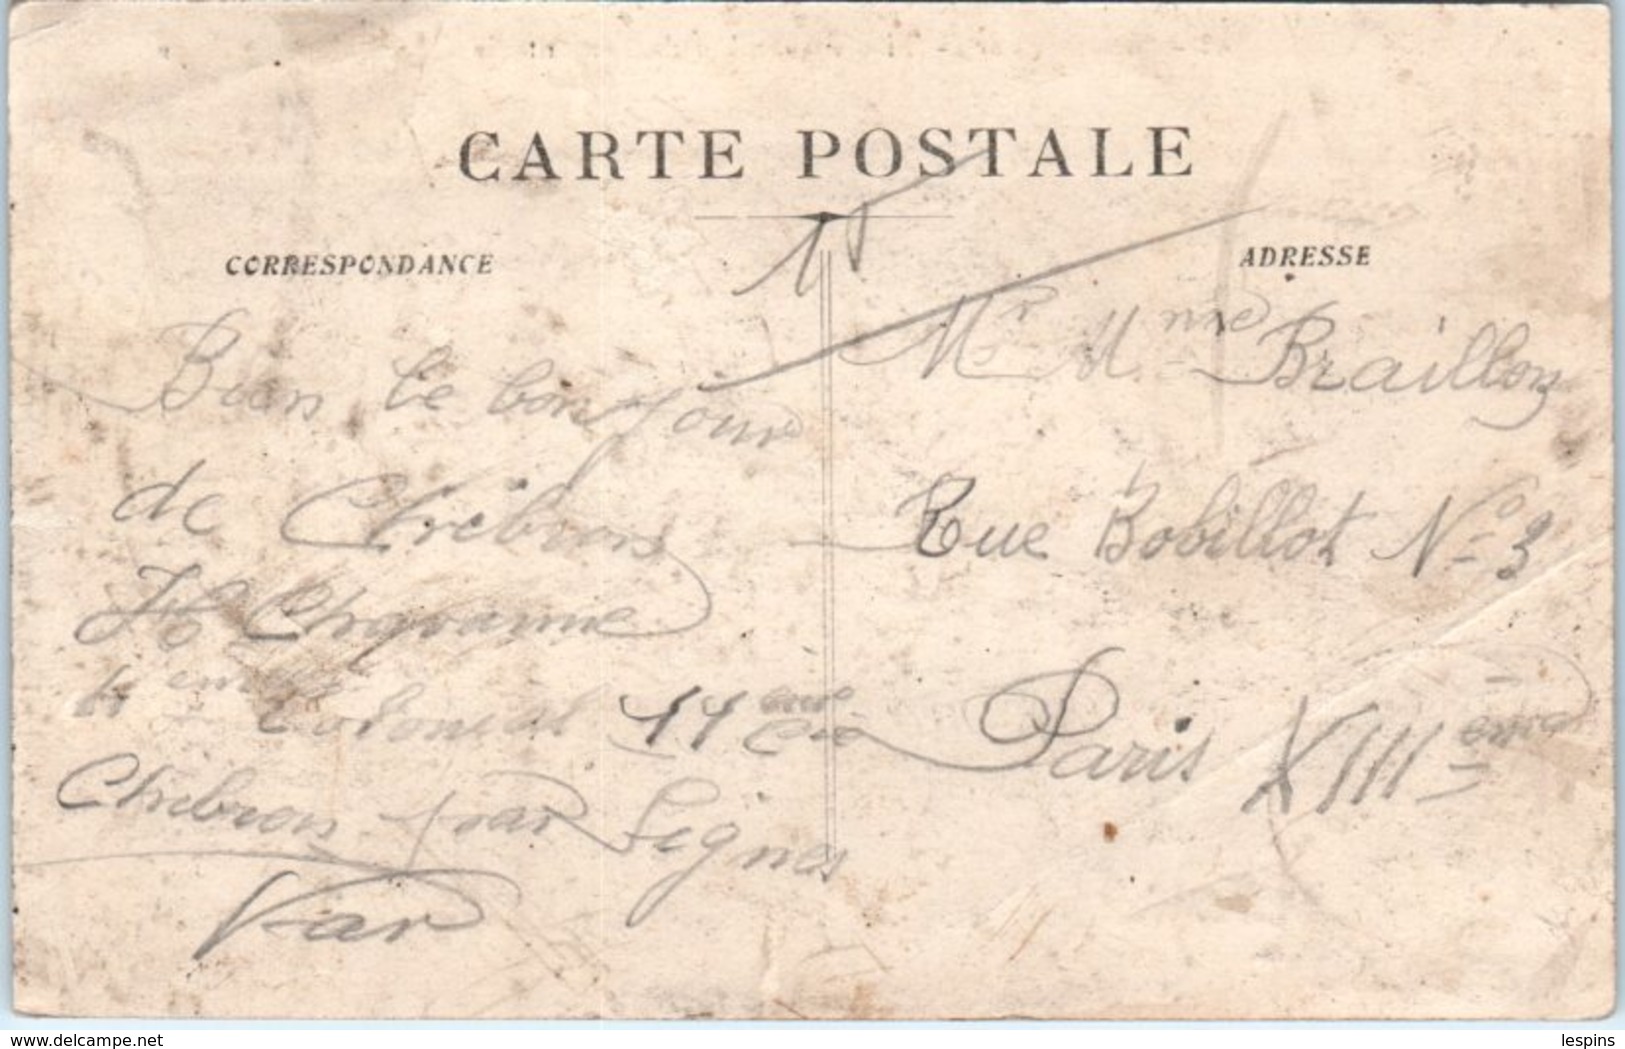 CARTE POSTALE
CORRESPONDANCE
ADRESSE
Bien le bonjour
de Chibron
Chavanne
4 eme Colonial 11 eme Cie
Chibron par Signes
Var
Mr Mme Braillon
Rue Bobillot No 3
Paris XIII eme
delcampe.net
lespins